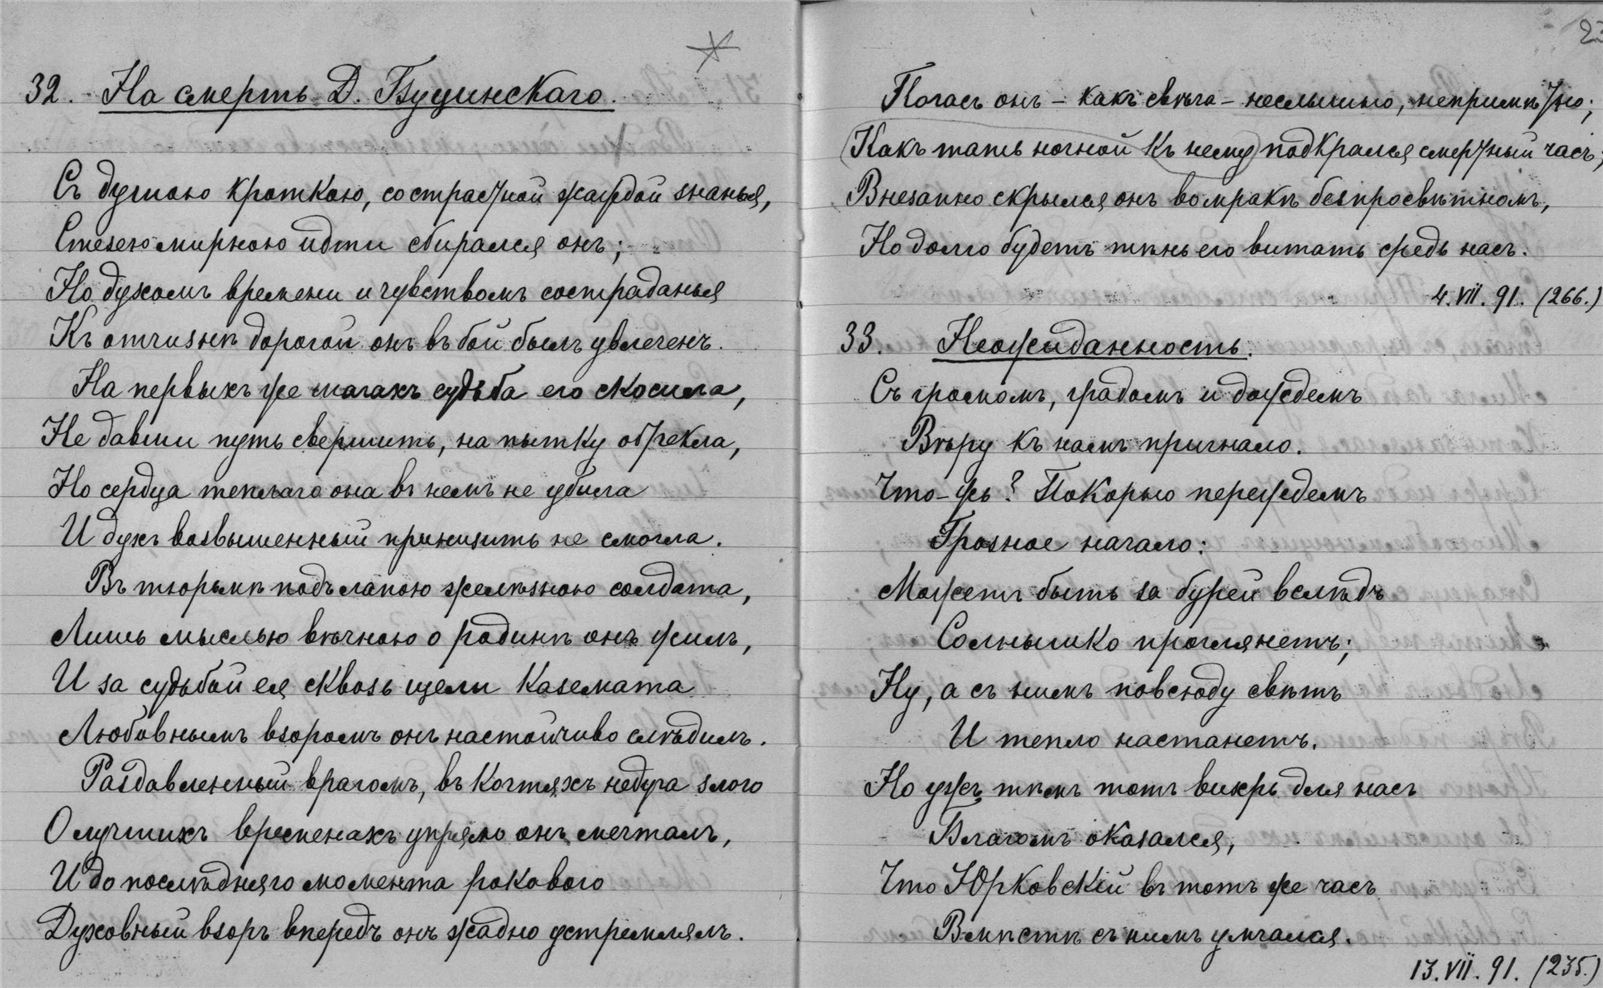 32. На смерть Д. Буцинскаго.
Съ душою кроткою, со страстной жаждой знанья,
Стезею мирною идти сбирался онъ;
Но духомъ времени и чувствомъ состраданья
Къ отчизнѣ дорогой онъ въ бой былъ увлеченъ.
На первыхъ же шагахъ судьба его скосила,
Не давши путь свершить, на пытку обрекла,
Но сердца теплаго она въ немъ не убила
И духъ возвышенный принизить не смогла.
Въ тюрьмѣ подъ лапою желѣзною солдата,
Лишь мыслью вѣчною о родинѣ онъ жилъ,
И за судьбой ея сквозь щели каземата
Любовнымъ взоромъ онъ настойчиво слѣдилъ.
Раздавленный врагомъ, въ когтяхъ недуга злого
О лучшихъ временахъ упрямо онъ мечталъ,
И до послѣдняго момента рокового
Духовный взоръ впередъ онъ жадно устремлялъ.
23
Погасъ онъ – какъ свѣча – неслышно, непримѣтно;
Какъ тать ночной къ нему подкрался смертный часъ;
Внезапно скрылся онъ во мракѣ безпросвѣтномъ,
Но долго будетъ тѣнь его витать средь насъ.
4.VII.91. (266.)
33. Неожиданность.
Съ громомъ, градомъ и дождемъ
Бурю къ намъ пригнало.
Что-жъ? Покорно переждемъ
Грозное начало:
Можетъ быть за бурей вслѣдъ
Солнышко проглянетъ;
Ну, а съ нимъ повсюду свѣтъ
И тепло настанетъ.
Но ужъ тѣмъ тотъ вихрь для насъ
Благомъ оказался,
Что Юрковскій въ тотъ же часъ
Вмѣстѣ съ нимъ умчался.
13.VII.91. (235.)